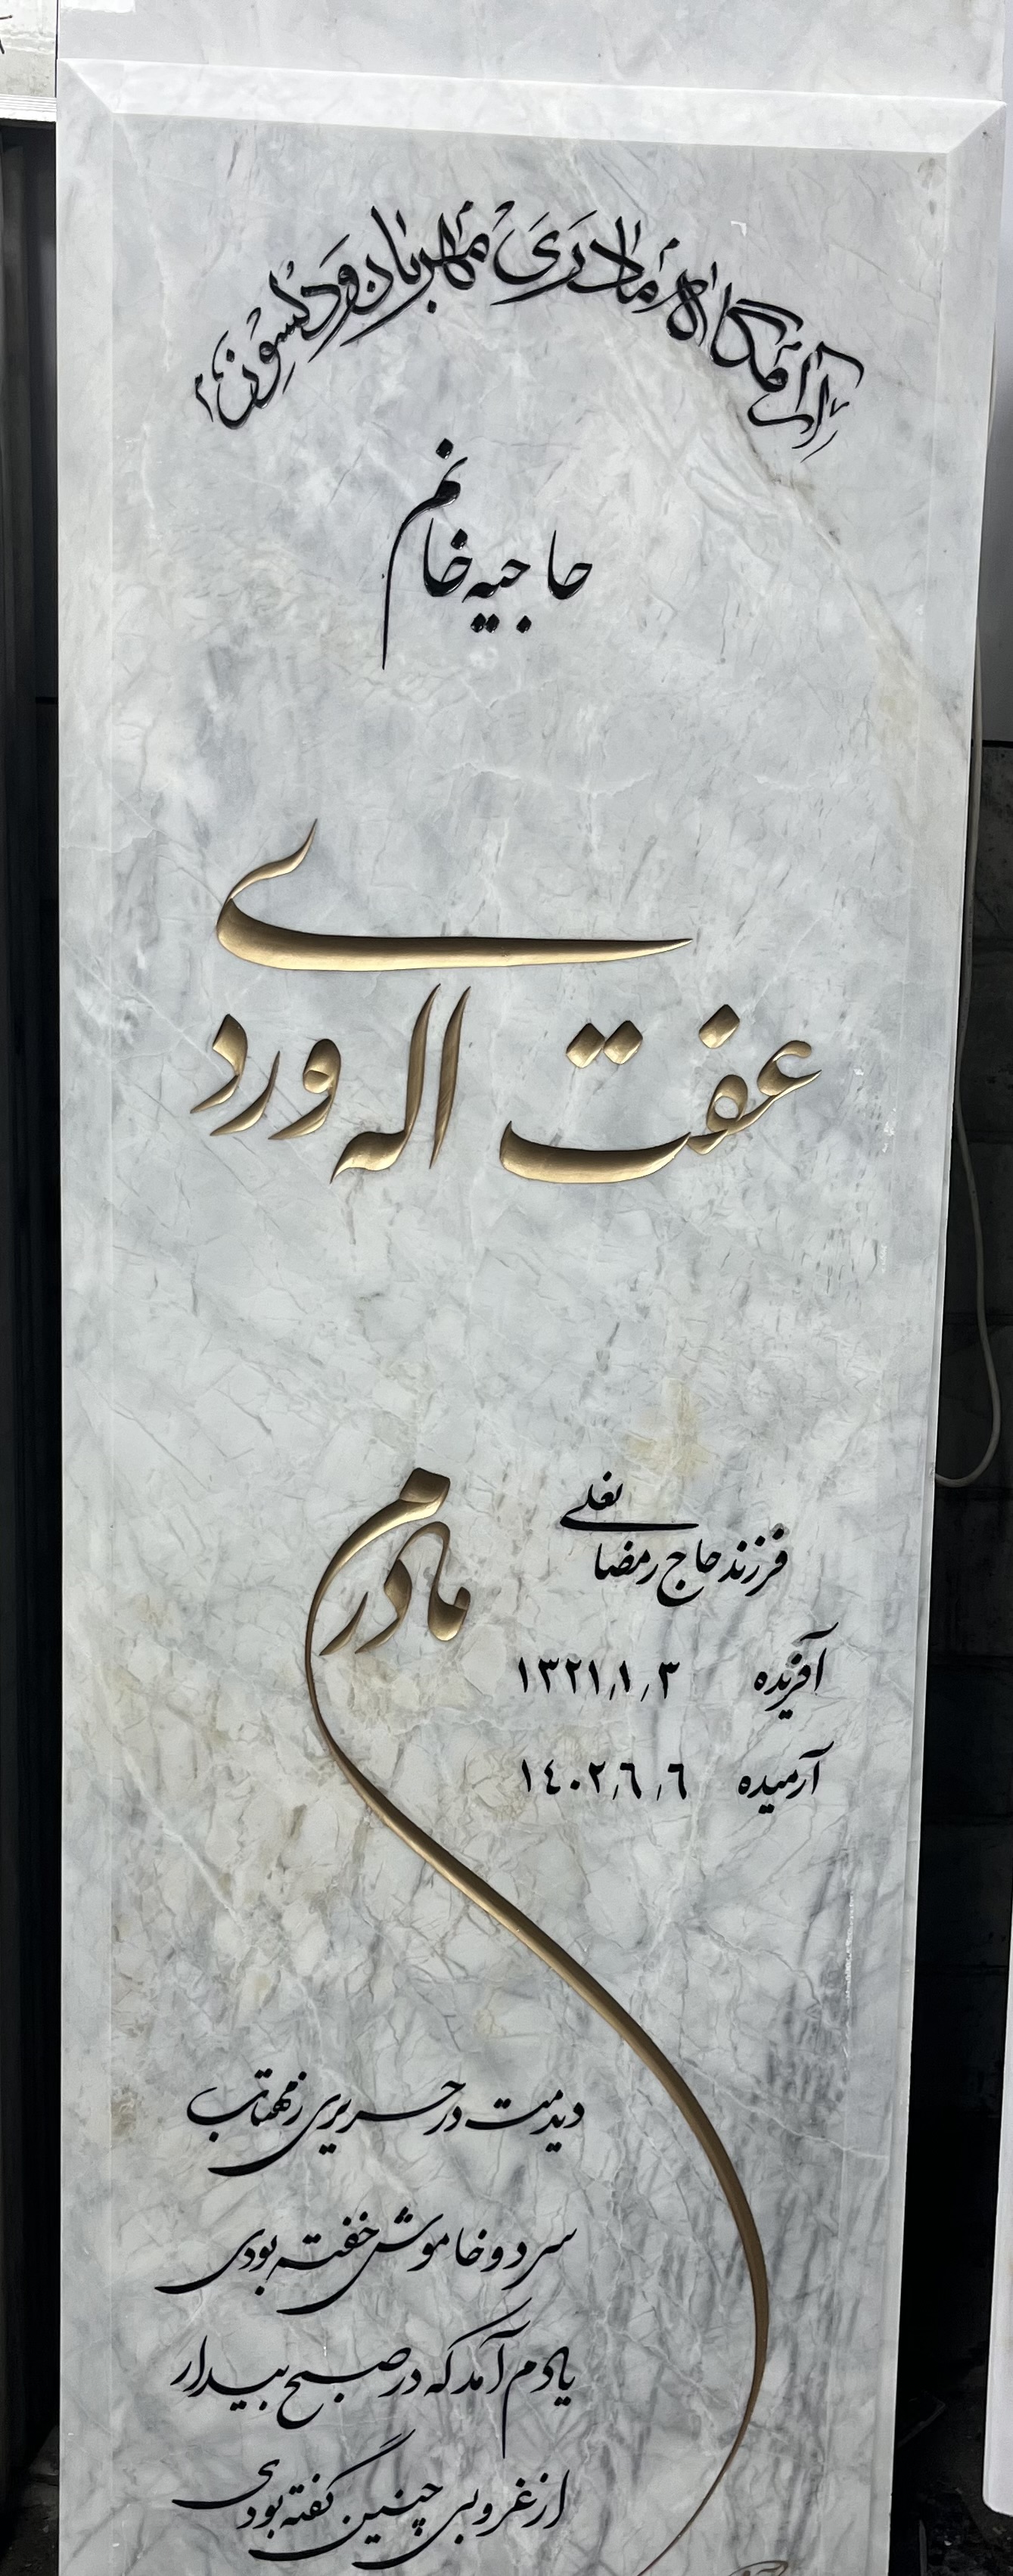 آرامگاه مادری مهربان و دلسوز
حاجیه خانم
عفت اله وردی
مادرم
فرزند حاج رمضانعلی
آفریده ۱۳۲۱٫۱٫۳
آرمیده ۱۴۰۲٫۶٫۶
دیدمت در حریری ز مهتاب
سرد و خاموش خفته بودی
یادم آمد که در صبح بیدار
از غروبی چنین گفته بودی